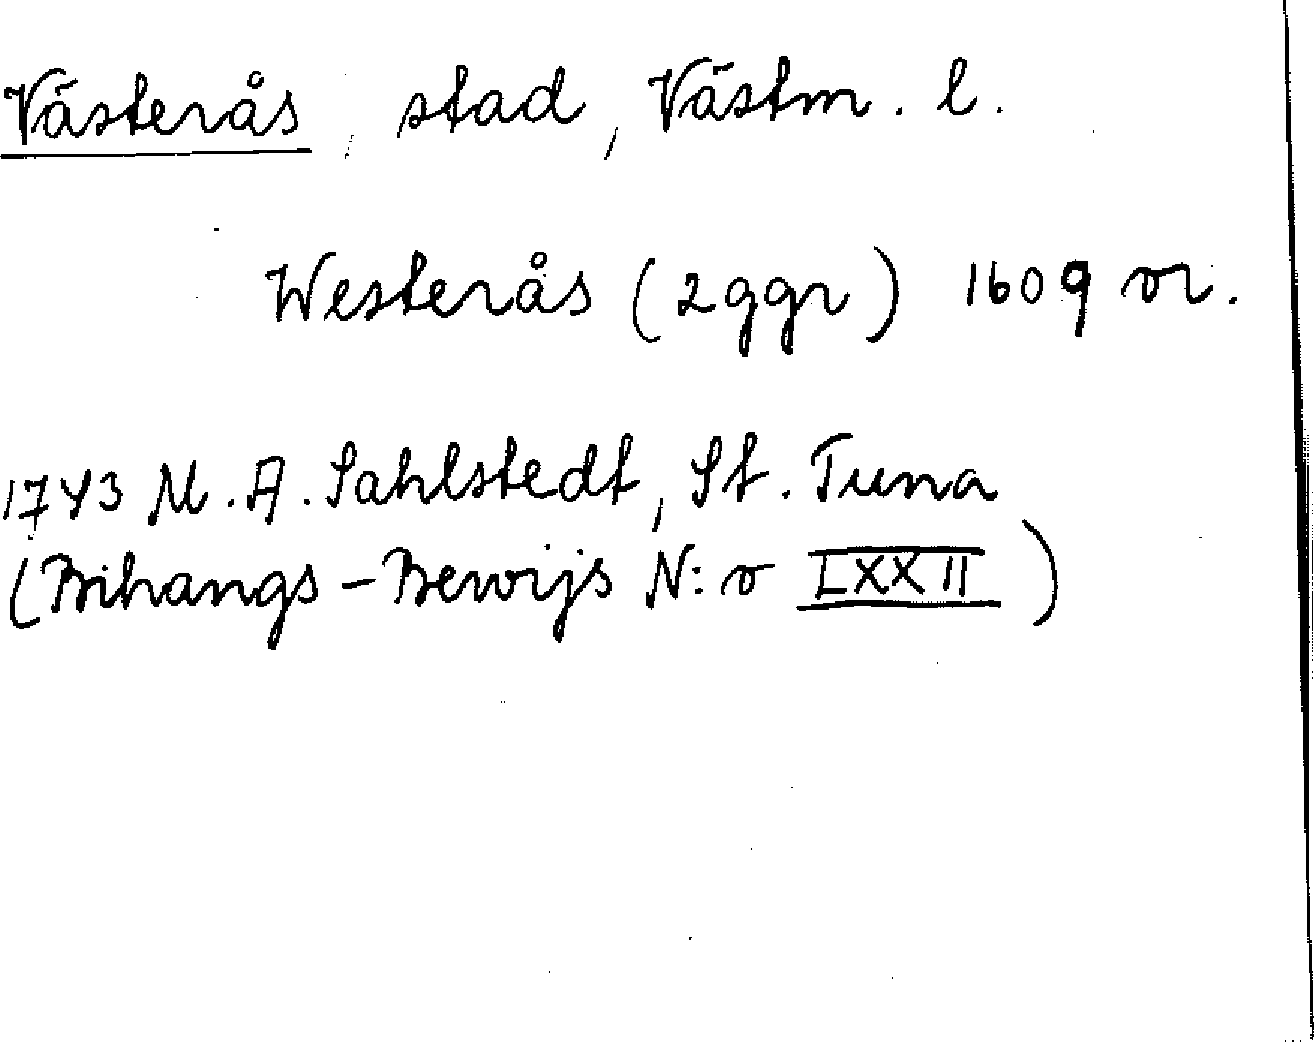 Västerås, stad, Västm. l.
Westerås (2 ggr) 1609 or.
1743 M. A. Sahlstedt, St. Tuna
(Bihangs-Bewijs N:o LXXII)